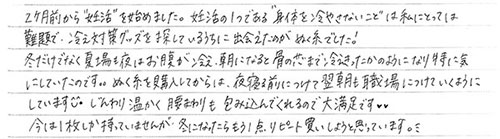 2ヶ月前から"妊活"を始めました。妊活の1つである"身体を冷やさないこと"は私にとっては
難題で、冷え対策グッズを探しているうちに出会えたのがぬく糸でした!
冬だけでなく夏場も夜はお腹が冷え、朝になると骨の芯まで冷えきったかのようになり特に気
にしていたのです。。ぬく糸を購入してからは、夜寝る前につけて翌朝も職場につけていくように
しています♡ じんわり温かく腰まわりも包み込んでくれるので大満足です♥♥
今は1枚しか持っていませんが、冬になったらもう1点、リピート買いしようと思っています。